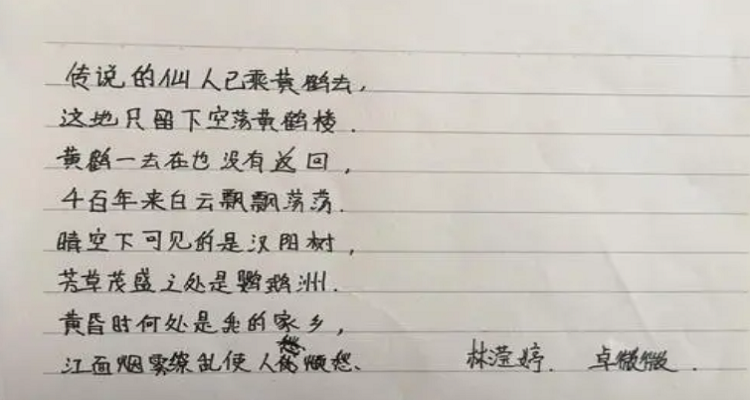 传说的仙人已乘黄鹤去，
这地只留下空荡黄鹤楼．
黄鹤一去在也没有返回，
千百年来白云飘飘荡荡．
晴空下可见的是汉阳树，
芳草茂盛之处是鹦鹉洲．
黄昏时何处是我的家乡，
江面烟雾缭乱使人愁． 林滢婷． 卓微微．